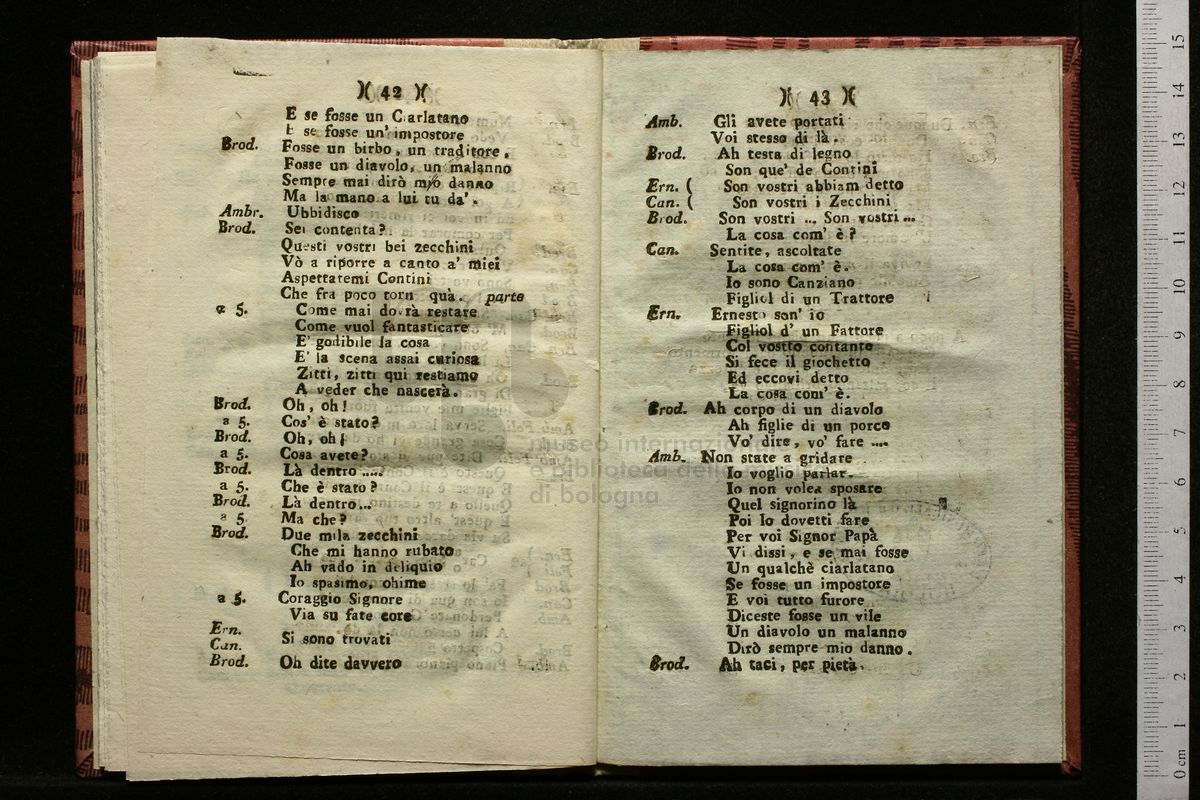 )( 42 )(
E se fosse un Ciarlatano
E se fosse un' impostore
Brod. Fosse un birbo, un traditore.
Fosse un diavolo, un malanno
Sempre mai dirò mio danno
Ma la mano a lui tu da'.
Ambr. Ubbidisco
Brod. Sei contenta?
Questi vostri bei zecchini
Vò a riporre a canto a' miei
Aspettatemi Contini
Che fra poco torn quà. parte
a 5. Come mai dovrà restare
Come vuol fantasticare
E' godibile la cosa
E' la scena assai curiosa
Zitti, zitti qui restiamo
A veder che nascerà.
Brod. Oh, oh!
a 5. Cos' è stato?
Brod. Oh, oh!
a 5. Cosa avete?
Brod. Là dentro .....
a 5. Che è stato?
Brod. Là dentro...
a 5. Ma che?
Brod. Due mila zecchini
Che mi hanno rubato
Ah vado in deliquio
Io spasimo, ohime
a 5. Coraggio Signore
Via su fate core
Ern.
Can. Si sono trovati
Brod. Oh dite davvero
)( 43 )(
Amb. Gli avete portati
Voi stesso di là.
Brod. Ah testa di legno
Son que' de Contini
Ern. ( Son vostri abbiam detto
Can. ( Son vostri i Zecchini
Brod. Son vostri ... Son vostri...
La cosa com' è?
Can. Sentite, ascoltate
La cosa com' è.
Io sono Canziano
Figliol di un Trattore
Ern. Ernesto son' io
Figliol d' un Fattore
Col vostto contante
Si fece il giochetto
Ed eccovi detto
La cosa com' è.
Brod. Ah corpo di un diavolo
Ah figlie di un porco
Vo' dire, vo' fare ....
Amb. Non state a gridare
Io voglio parlar.
Io non volea sposare
Quel signorino là
Poi lo dovetti fare
Per voi Signor Papà
Vi dissi, e se mai fosse
Un qualchè ciarlatano
Se fosse un impostore
E voi tutto furore
Diceste fosse un vile
Un diavolo un malanno
Dirò sempre mio danno.
Brod. Ah taci, per pietà.
museo internazi
e biblioteca del
di bologna